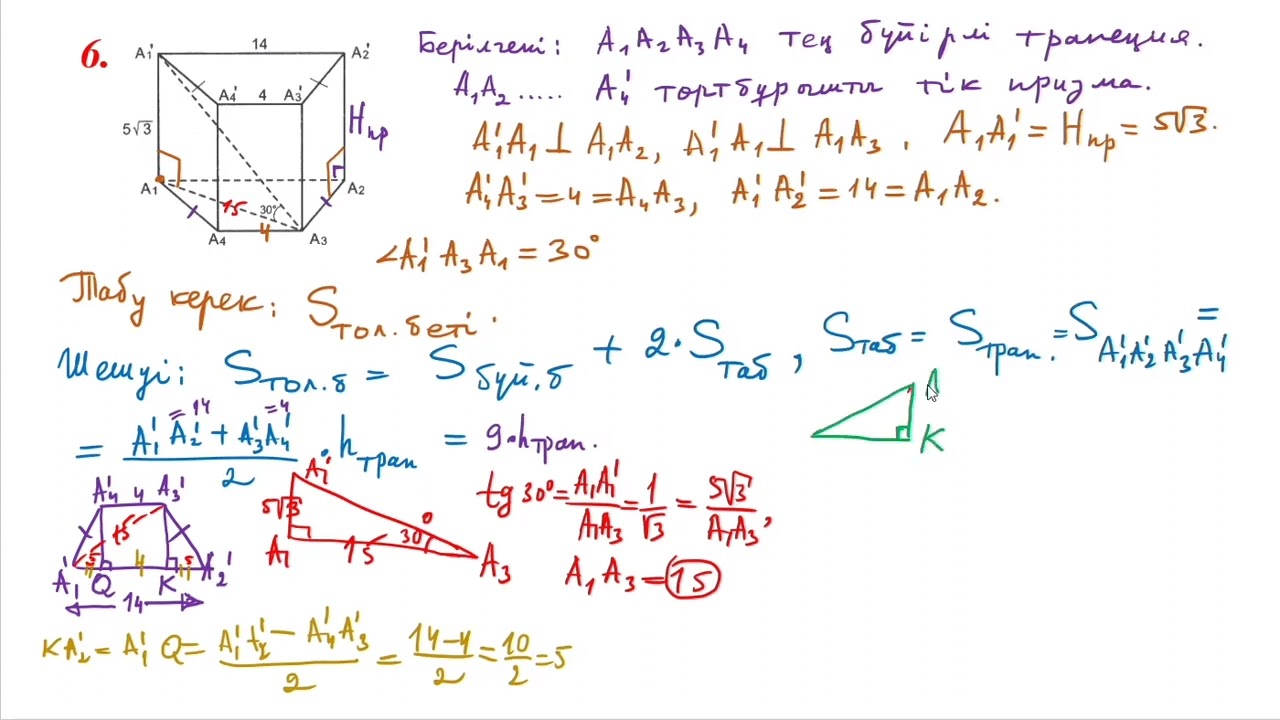 6.
A₁' 14 A₂'
A₄' 4 A₃'
5√3 Hпр
A₁ A₂
15 30°
A₄ 4 A₃
Берілгені: A₁A₂A₃A₄ тең бүйірлі трапеция.
A₁A₂..... A₄' төртбұрышты тік призма.
A₁'A₁ ⊥ A₁A₂, A₁'A₁ ⊥ A₁A₃. A₁A₁' = Hпр = 5√3.
A₄'A₃' = 4 = A₄A₃, A₁'A₂' = 14 = A₁A₂.
∠A₁'A₃A₁ = 30°
Табу керек: Sтол.беті.
Шешуі: Sтол.б = Sбүй.б + 2·Sтаб, Sтаб = Sтрап. = S A₁'A₂'A₃'A₄' =
= (A₁'A₂' + A₃'A₄')/2 · hтрап = 9·hтрап.
=14 =4
A₄' 4 A₃'
15
5 4 5
A₁' Q K A₂'
14
A₁'
5√3
A₁ 15 30° A₃
tg30° = A₁A₁'/A₁A₃ = 1/√3 = 5√3/A₁A₃,
A₁A₃ = 15
A
K
KA₂' = A₁'Q = (A₁'A₂' − A₄'A₃')/2 = (14−4)/2 = 10/2 = 5